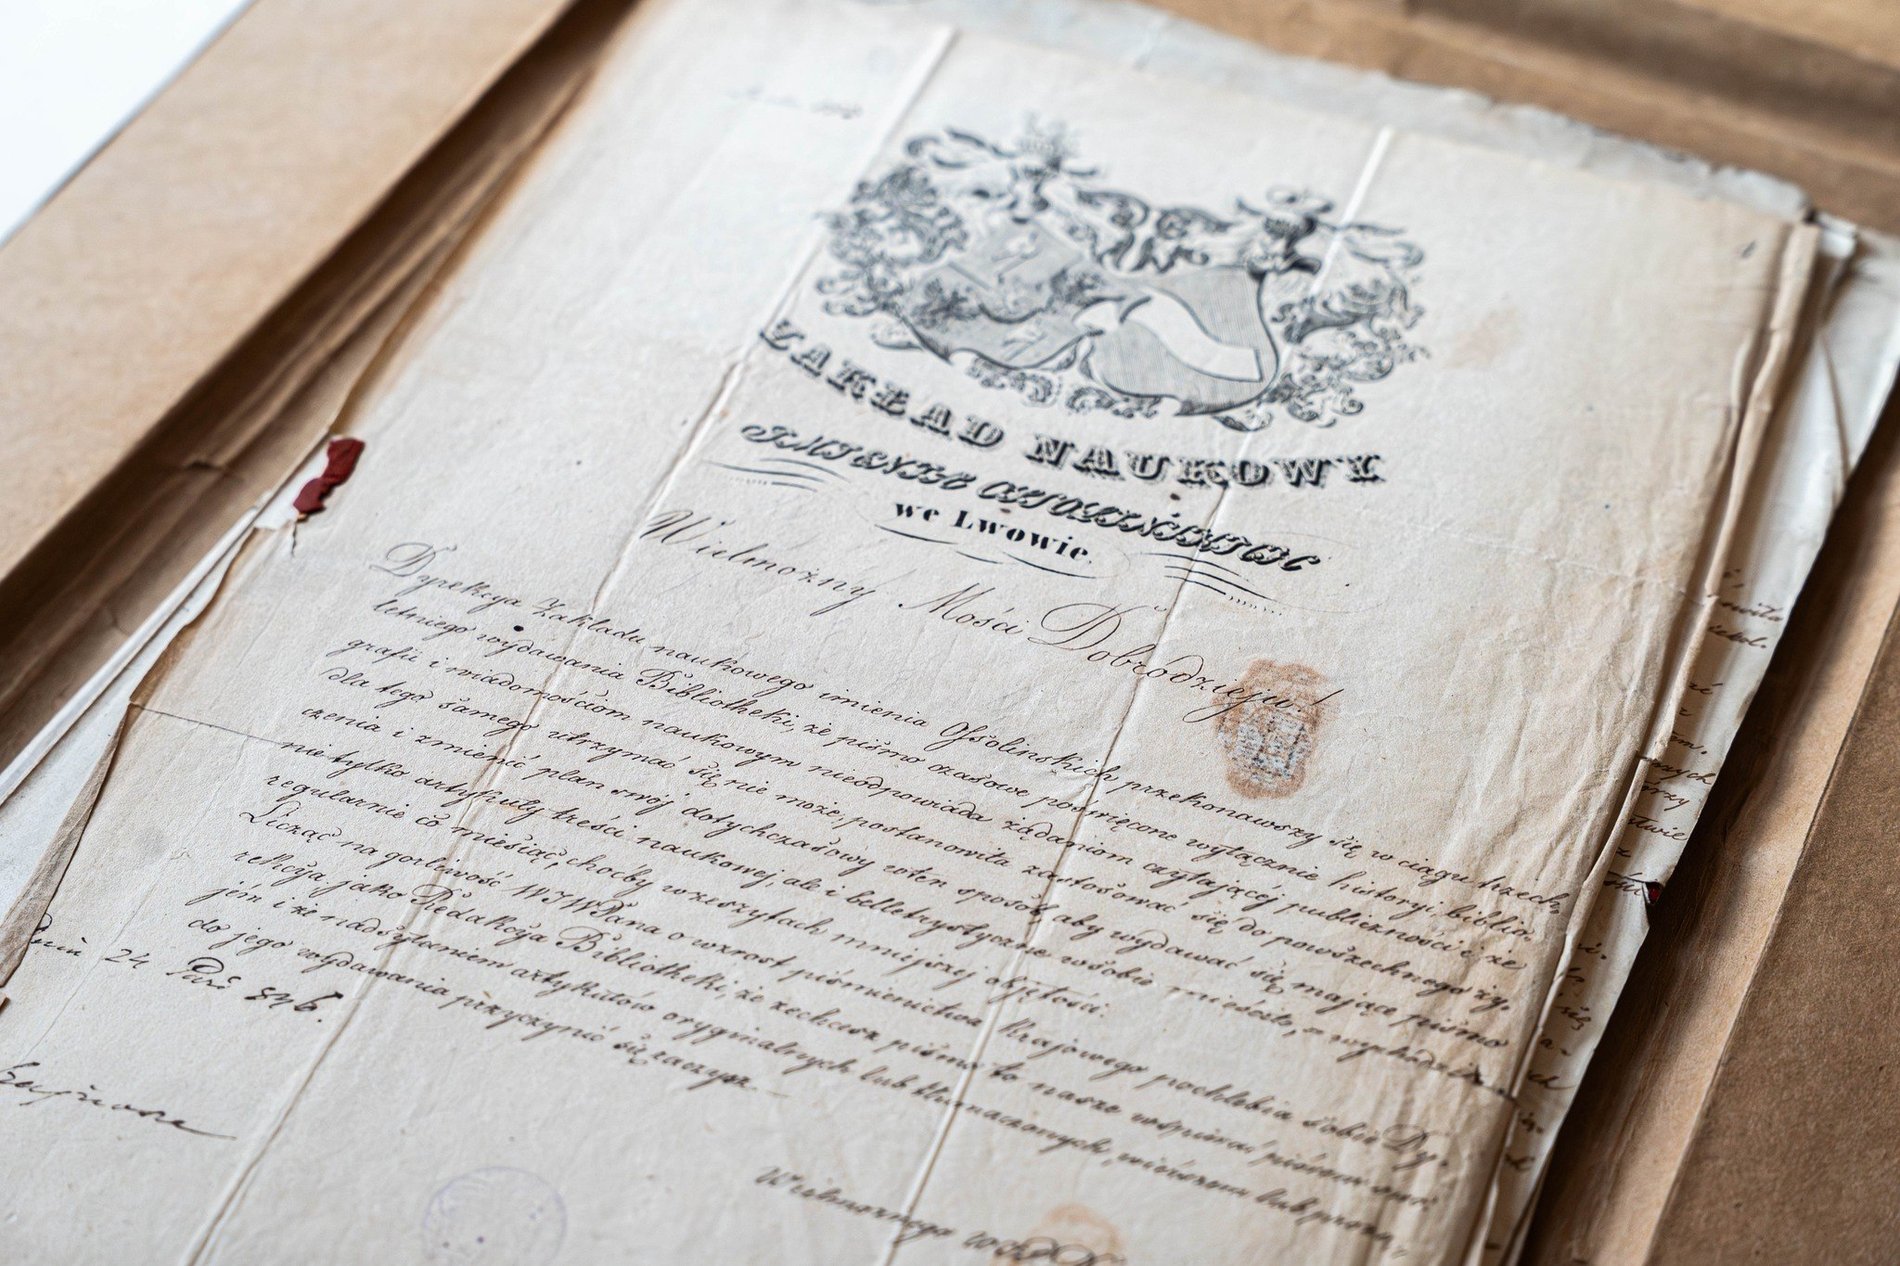 ZAKŁAD NAUKOWY
IMIENIA OSSOLIŃSKICH
we Lwowie.
Wielmożny Mości Dobrodzieju!
Dyrekcya Zakładu naukowego imienia Ossolinskich przekonawszy się w ciągu trzech
letniego wydawania Bibliotheki, że pismo czasowe poświęcone wyłącznie historyi, biblio-
grafii i wiadomościom naukowym nieodpowiada żądaniom czytającéj publiczności i że
dla tego samego utrzymać się nie może, postanowiła zastosować się do powszechnego ży-
czenia i zmienić plan swój dotychczasowy w ten sposób, aby wydawać się mające pismo
nie tylko artykuły treści naukowej, ale i belletrystyczne w sobie mieściło, a wychodziło
regularnie co miesiąc, choćby w zeszytach mniejszej objętości.
Licząc na gorliwość WJWPana o wzrost piśmienictwa Krajowego pochlebia sobie Dy-
rekcya jako Redakcya Bibliotheki, że zechcesz pismo to nasze wspierać
i że nadsyłaniem artykułów oryginalnych lub tłumaczonych,
do jego wydawania przyczynić się raczysz.
dnia 24 Paź 846.
Wielmożnego